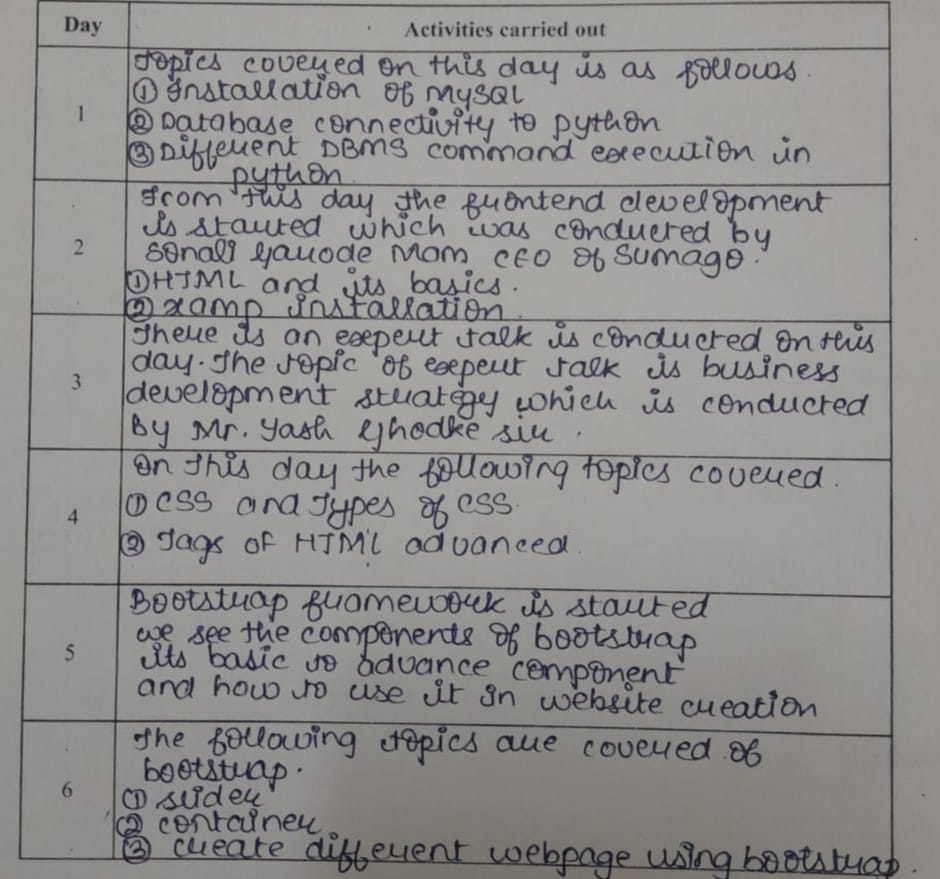 Day Activities carried out
1
Topics covered on this day is as follows.
① Installation of MySQL
② Database connectivity to python
③ Different DBMS command execution in
python.
2
From this day the frontend development
is started which was conducted by
Sonali Garode Mam CEO of Sumago.
① HTML and its basics.
② xamp installation.
3
There is an expert talk is conducted on this
day. The topic of expert talk is business
development strategy which is conducted
By Mr. Yash Ghodke sir.
4
On this day the following topics covered.
① CSS and Types of CSS.
② Tags of HTML advanced.
5
Bootstrap framework is started
we see the components of bootstrap
its basic to advance component
and how to use it in website creation
6
The following topics are covered of
bootstrap.
① slider
② container
③ create different webpage using bootstrap.